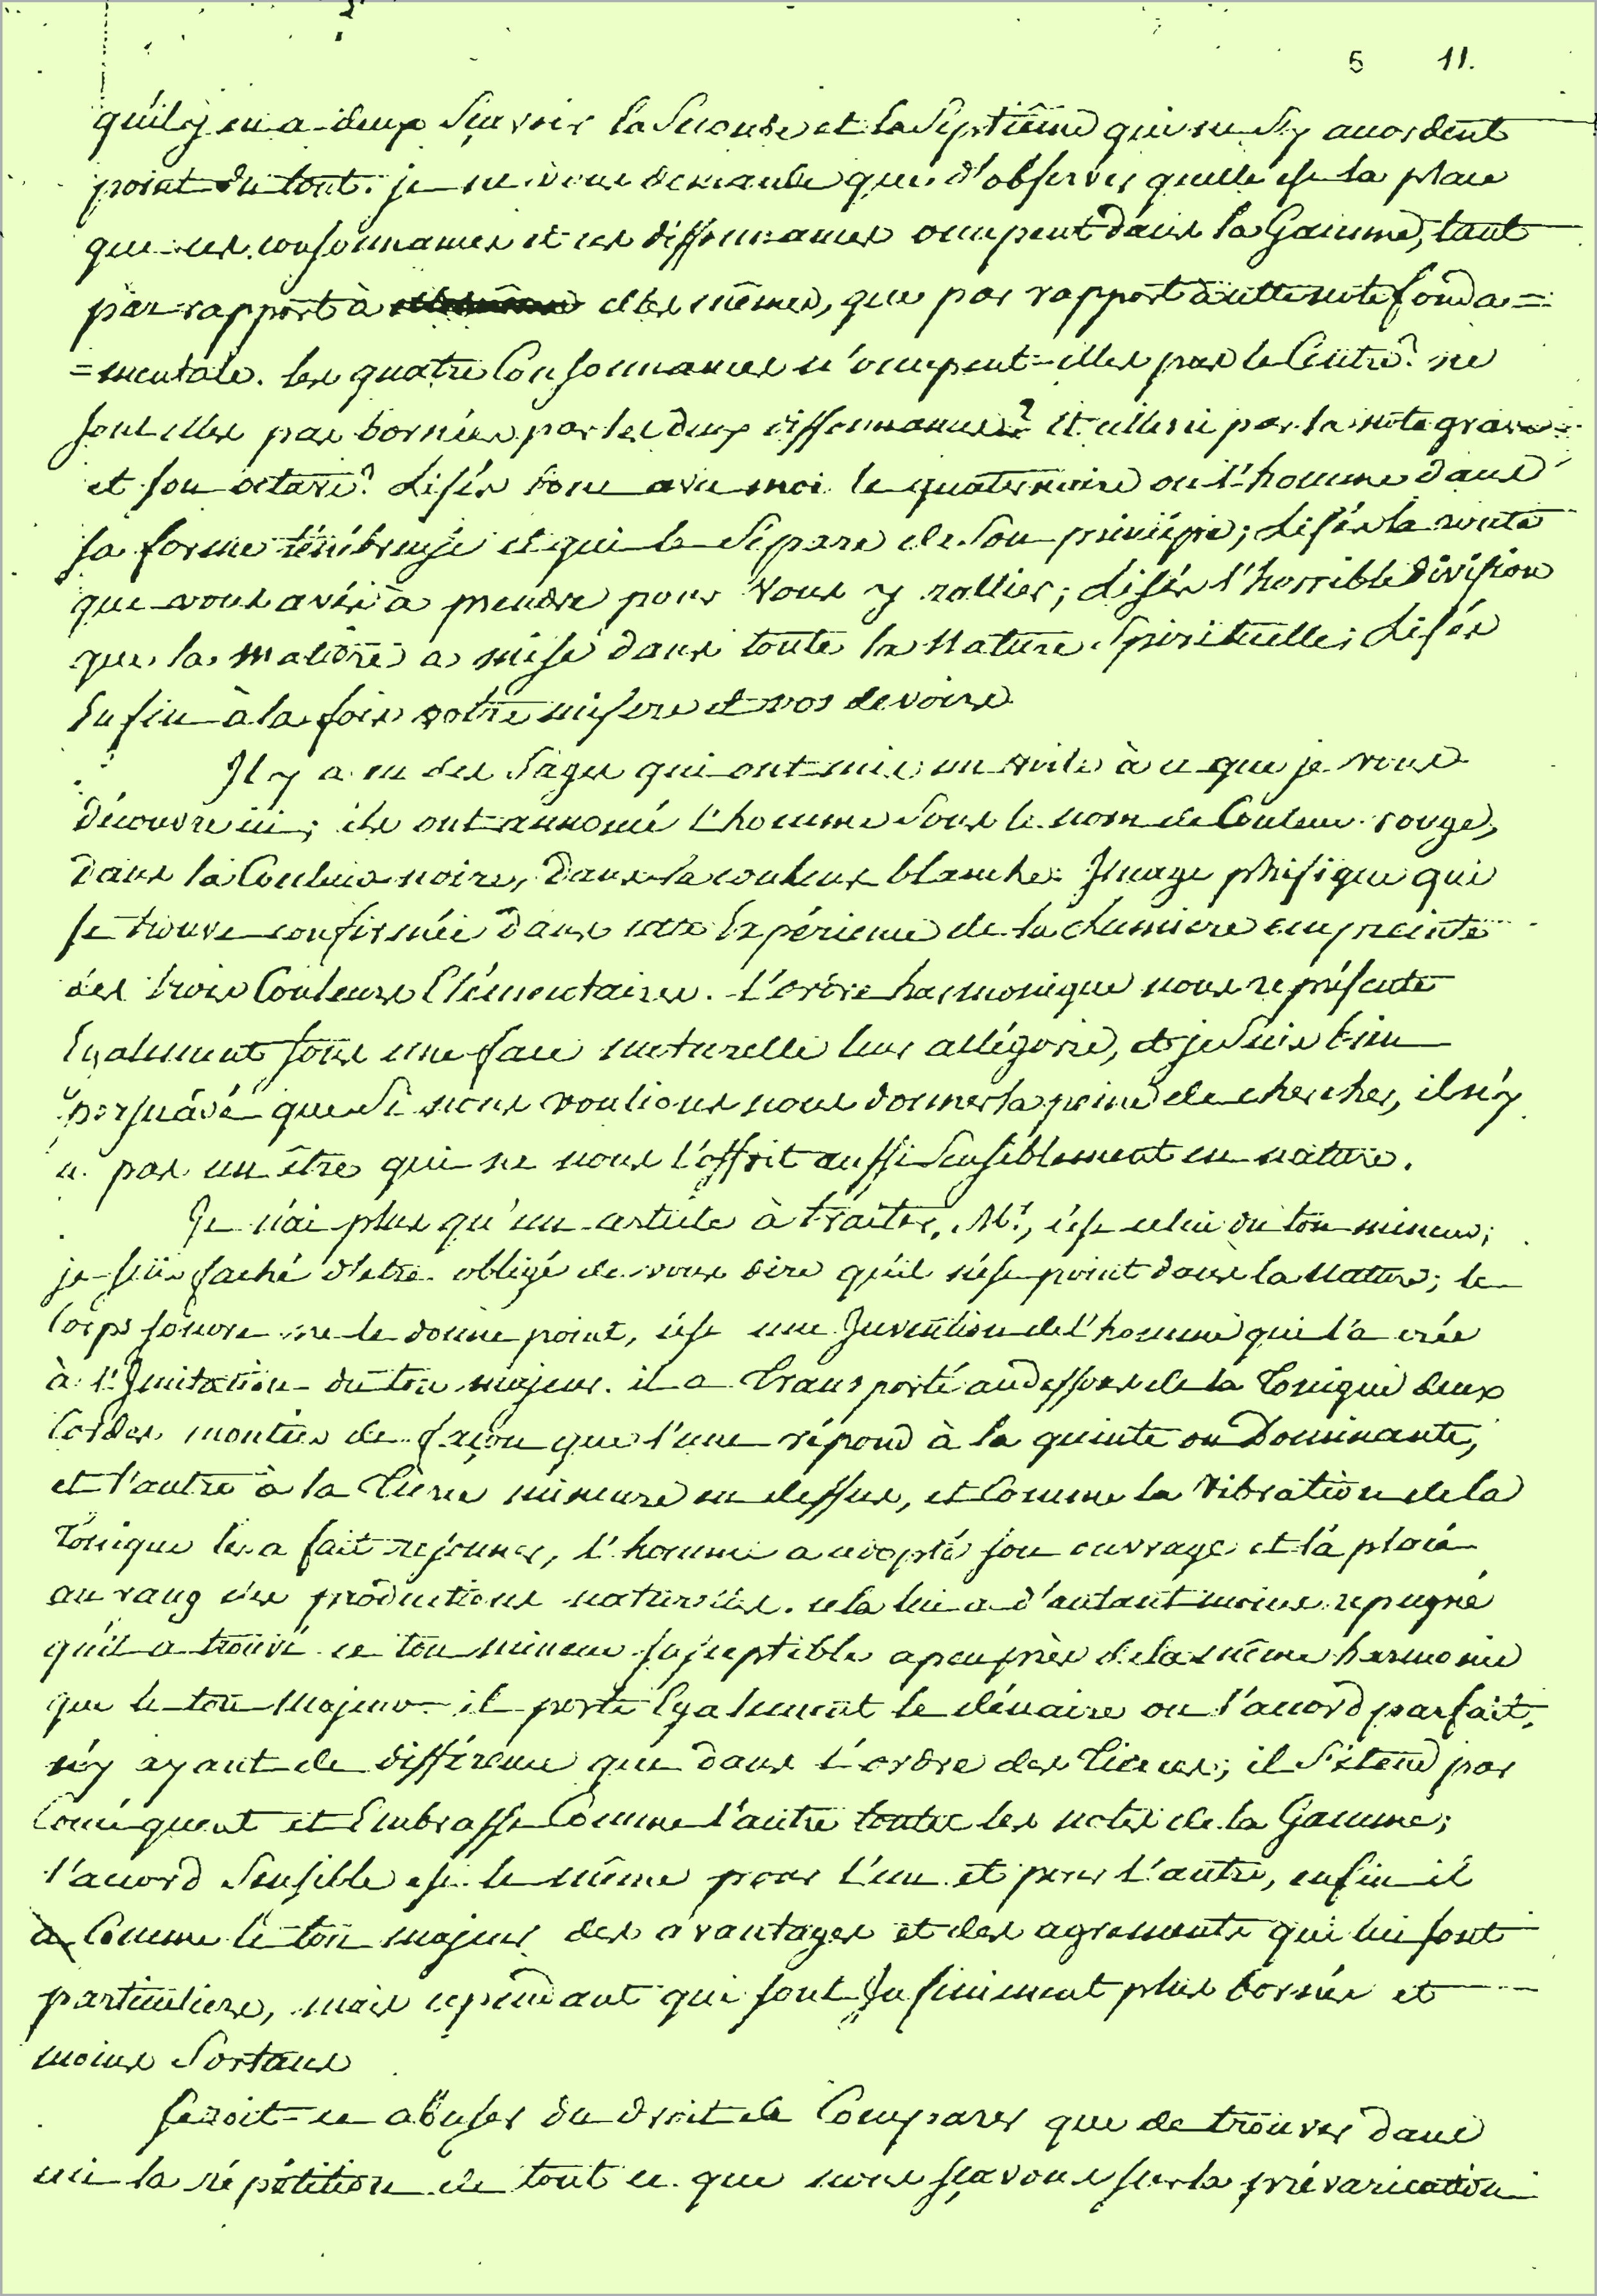 5 11.
qu'il y en a deux Sçavoir la Seconde et la Septiême qui ne S'y acordent
point du tout. je ne vous demande que d'observer quelle est la place
que ces consonnances et ces dissonnances ocupent dans la Gamme, tant
par rapport à elles mêmes, que par rapport à cette note fonda=
=mentale. les quatre Consonnances n'ocupent-elles pas le Centre? ne
sont elles pas bornées par les deux dissonnances? Et celles ci par la note grave
et son octave? Lisés donc avec moi le quaternaire ou l'homme dans
sa forme ténébreuse et qui le Sépare de Son principe; Lisés la route
que vous avés à prendre pour vous y rallier; Lisés l'horrible division
que la matière a mise dans toute la Nature Spirituelle; Lisés
Enfin à la fois votre misere et vos devoirs
Il y a eu des Sages qui ont mis un voile à ce que je vous
découvre ici; ils ont annoncé l'homme Sous le nom de Couleur rouge,
dans la Couleur noire, dans la couleur blanche. Image phisique qui
se trouve confirmée dans cette Expérience de la lumiere empreinte
des trois Couleurs Elémentaires. L'ordre harmonique nous représente
Egalement sous une face naturelle leur allégorie, et je Suis bien
persuadé que Si nous voulions nous donner la peine de chercher, il n'y
a pas un être qui ne nous l'offrit aussi Sensiblement en nature.
Je n'ai plus qu'un article à traiter, Mr., c'est celui du ton mineur;
je suis faché d'etre obligé de vous dire qu'il n'est point dans la Nature; le
Corps sonore ne le donne point, c'est une Invention de l'homme qui l'a créé
à l'Imitation du ton majeur. il a transporté au dessous de la Tonique deux
Cordes montées de façon que l'une répond à la quinte ou Dominante,
et l'autre à la Tierce mineure en dessus, et Comme la vibration de la
Tonique les a fait resonner, l'homme a adopté son ouvrage et l'a placé
au rang des productions naturelles. cela lui a d'autant moins repugné
qu'il a trouvé ce ton mineur susceptible apeuprès de la même harmonie
que le ton majeur. il porte Egalement le dénaire ou l'accord parfait,
n'y ayant de différence que dans l'ordre des Tierces; il S'étend par
Conséquent et Embrasse Comme l'autre toutes les notes de la Gamme;
l'accord Sensible est le même pour l'un et pour l'autre, enfin il
a Comme le ton majeur des avantages et des agrements qui lui sont
particuliers, mais cependant qui sont Infiniment plus bornés et
moins Sortans
seroit-ce abuser du droit de Comparer que de trouver dans
ici la répétition de tout ce que nous sçavons sur la prévarication